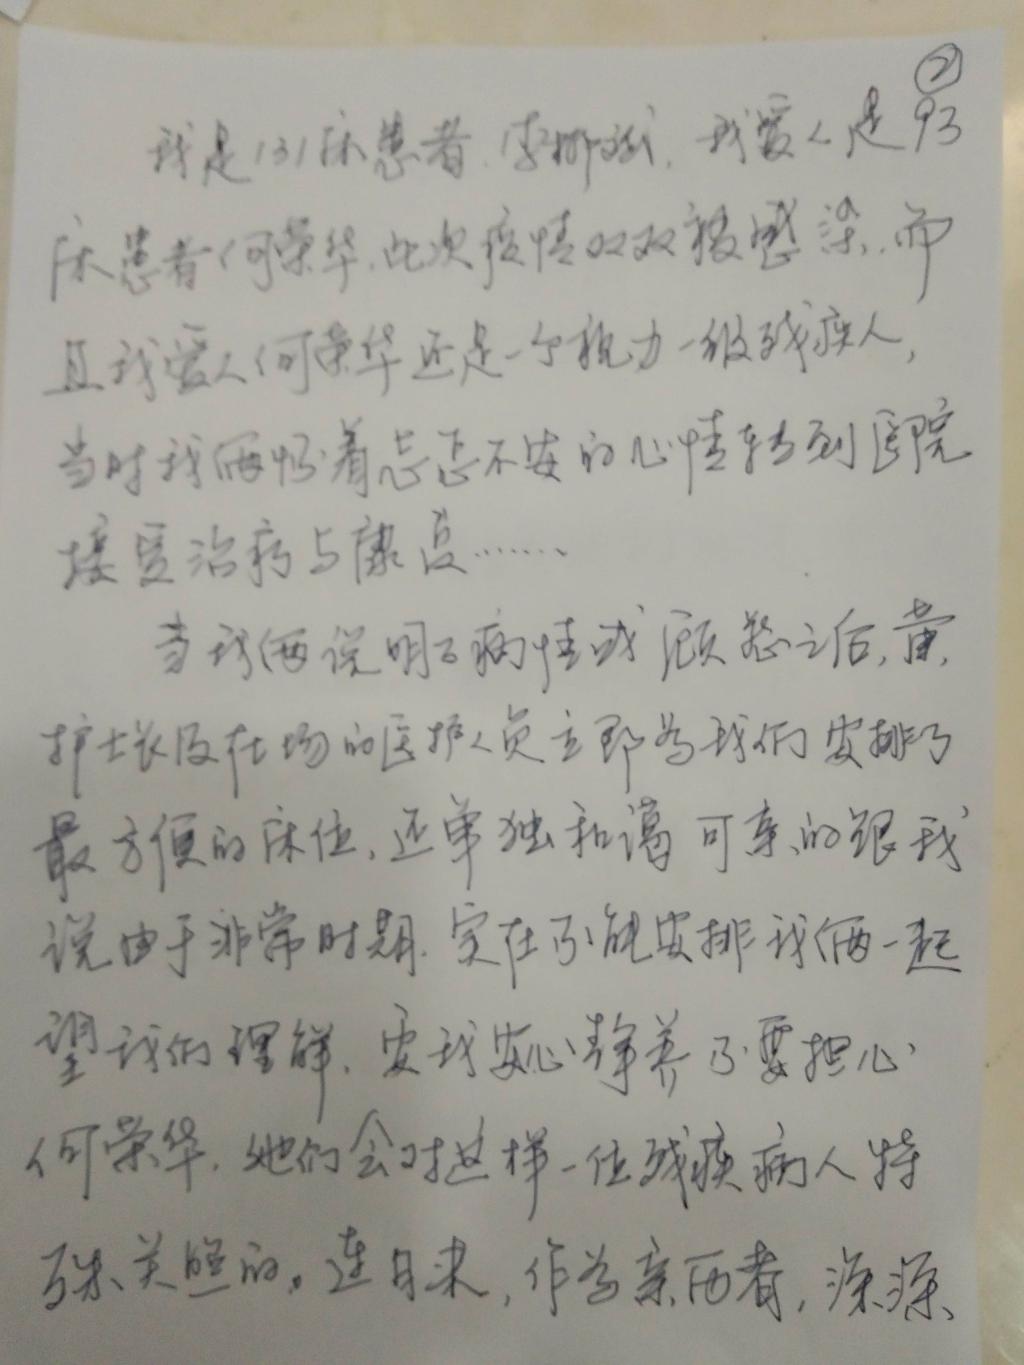 ②
我是131床患者.李,我爱人是93
床患者何荣华.此次疫情双双被感染.而
且我爱人何荣华还是一个视力一级残疾人,
当时我俩怀着忐忑不安的心情转到医院
接受治疗与康复……
当我俩说明了病情或顾虑之后,黄
护士长及在场的医护人员立即为我们安排了
最方便的床位,还单独和蔼可亲的跟我
说由于非常时期.实在不能安排我俩一起
望我们理解.要我安心静养不要担心
何荣华.她们会对这样一位残疾病人特
殊关照的。连日来,作为亲历者,深深